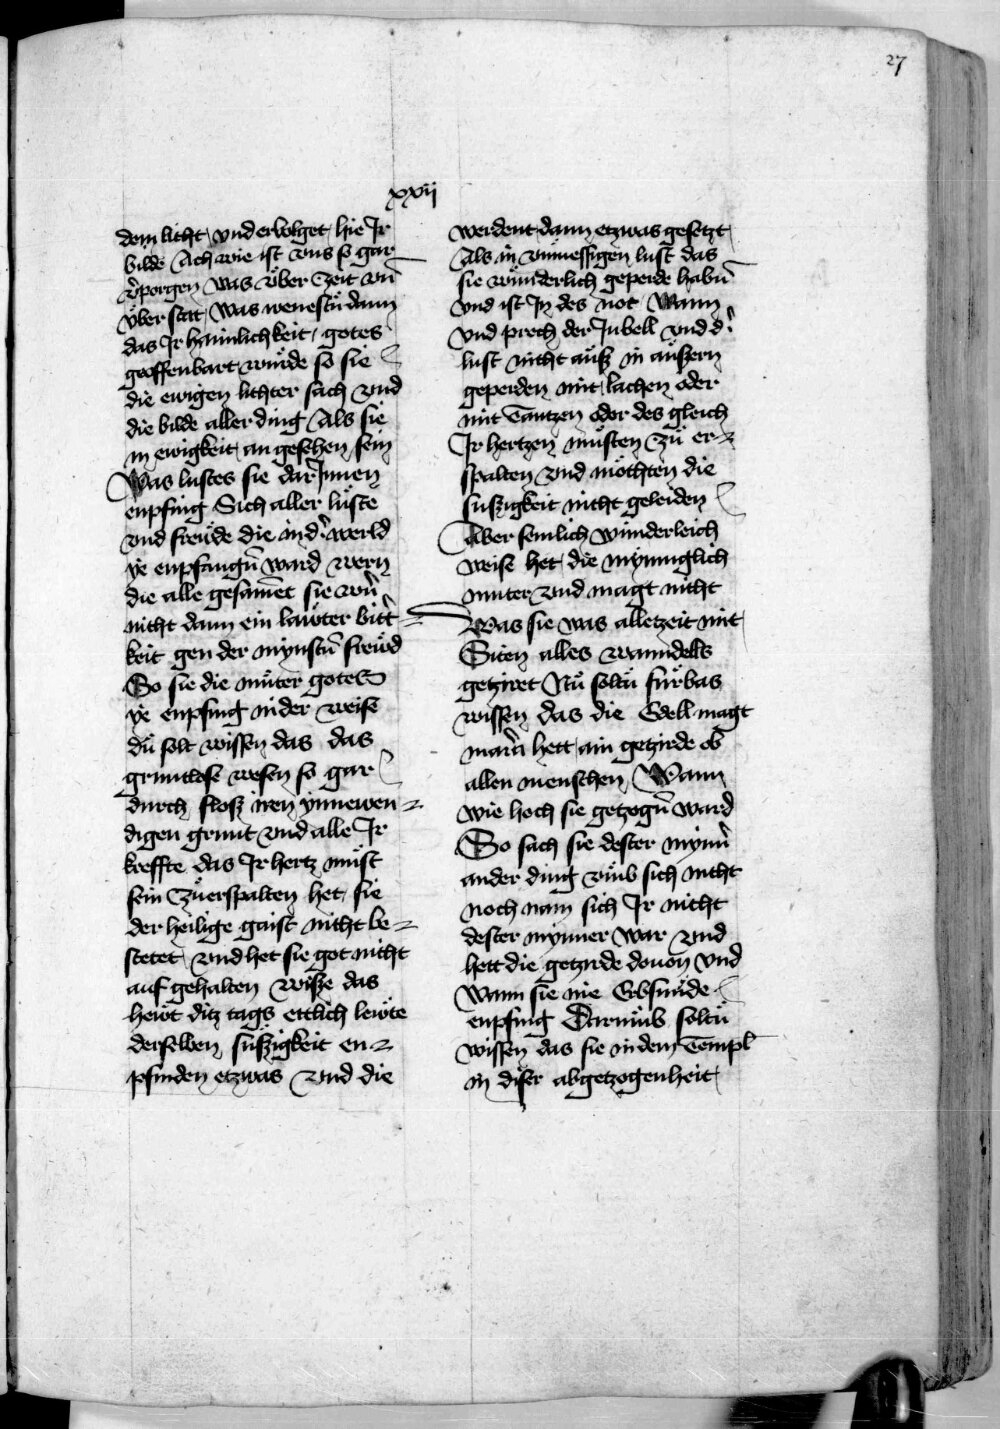 27
xxvij
dem licht vnd ervolget hie Ir
bilde Ach wie ist vns so gar
v̄porgen was v̈ber Zeit vn̄
v̈ber stat Was wenestu dann
das Ir haimlichkeit gotes
geoffenbart wuͤrde so sie
die ewigen lichter sach vnd
die bilde aller ding Als sie
in ewigkeit an gesehen sein
Was lustes sie dar Innen
enpfing Sich aller luͤste
vnd freuͤde die in d̄ werld
ye enpfangn̄ ward wern
die alle gesament sie wn̄
nicht dann ein lawter bitt̄
keit gen der mynstn̄ freuͤd
So sie die muͤter gotes
ye enpfing in der weise
du solt wissen das das
gruntlose wesen so gar
durch flosz iren ynnewen
digen grunt vnd alle Ir
kreffte das Ir hertz muͤst
sein Zuͤerspalten het sie
der heilige gaist nicht be
stetet vnd het sie got nicht
auf gehalten wisze das
hewt ditz tags ettlich lewte
derselben suͤszigkeit en
pfinden etzwas vnd die
werdent dann etzwas gesetzt
Als in vnmessigen lust das
sie wuͤnderlich geperde habn̄
vnd ist In des not Wann
vnd prech der Jubell vnd d̄
lust nicht auͤsz in auͤszern
geperden mit lachen oder
mit Tantzen oder des gleich
Ir hertzen muͤsten Zuͤ er
spalten vnd moͤchten die
suszigkeit nicht geleiden
Aber semlich wunderleich
weise het die mynniglich
muter vnd magt nicht
Was sie was alletzeit mit
Siten alles wanndells
getziret Nuͤ soltu fuͤrbas
wissen das die Edell magt
maria hett ain getzirde ob
allen menschen Wann
wie hoch sie getzogn̄ ward
So sach sie dester mynn̄
ander ding vmb sich nicht
noch nam sich Ir nicht
dester mynner war vnd
hett die getzirde douon vnd
Wann sie nie Erbsuͤnde
enpfing Darumb soltuͤ
wissen das sie in dem Templ
in diser abgetzogenheit